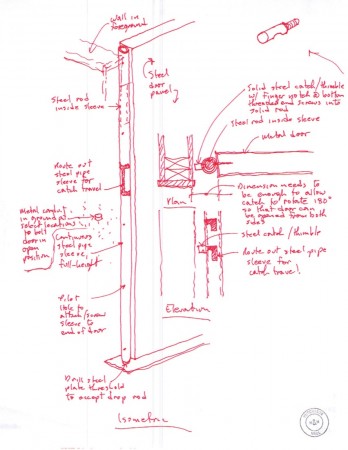 Wall in
foreground
Steel
door
panel
Steel rod
inside sleeve
Solid steel catch/thimble
w/ finger notch @ bottom
threaded end screws into
solid rod
Steel rod inside sleeve
Metal door
Route out
steel pipe
sleeve for
catch travel
Plan
Dimension needs to
be enough to allow
catch to rotate 180°
so that door can
be opened from both
sides
Metal
in ground @
select locations
to bolt
door in
open
position
Continuous
steel pipe
sleeve
full-height
Steel catch/thimble
Route out steel pipe
sleeve for
catch travel
Elevation
Pilot
hole to
attach/screw
sleeve to
end of door
Drill steel
plate threshold
to accept drop rod
Isometric